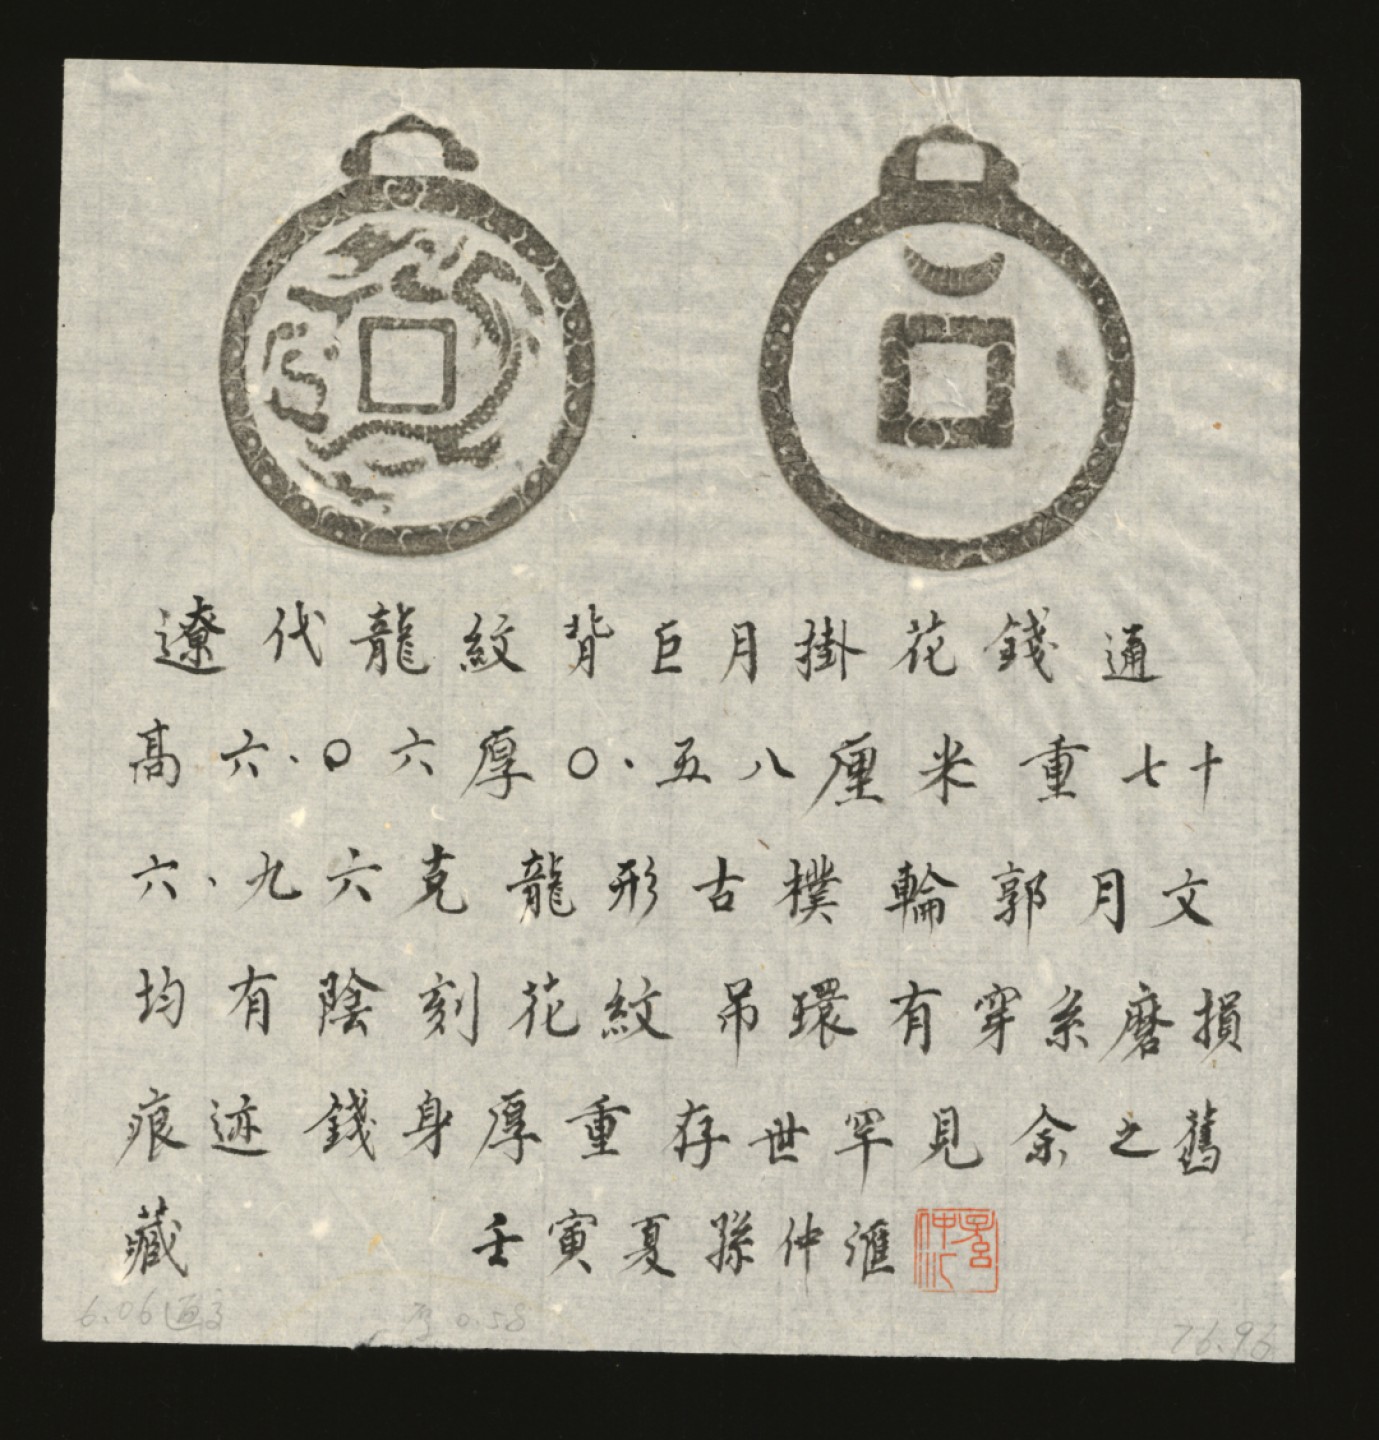 遼代龍紋背巨月掛花錢通
高六.〇六厚〇.五八厘米重七十
六.九六克龍形古樸輪郭月文
均有陰刻花紋吊環有穿系磨損
痕迹錢身厚重存世罕見余之舊
藏 壬寅夏孫仲滙
6.06通高 厚0.58 76.96